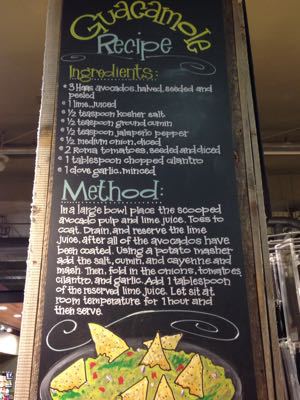 Guacamole
Recipe
Ingredients:
• 3 Haas avocados, halved, seeded and
peeled
• 1 lime, juiced
• ½ teaspoon kosher salt
• ½ teaspoon ground cumin
• ½ teaspoon jalapeño pepper
• ½ medium onion, diced
• 2 Roma tomatoes, seeded and diced
• 1 tablespoon chopped cilantro
• 1 clove garlic, minced
Method:
In a large bowl place the scooped
avocado pulp and lime juice. Toss to
coat. Drain, and reserve the lime
juice, after all of the avocados have
been coated. Using a potato masher
add the salt, cumin, and cayenne and
mash. Then, fold in the onions, tomatoes,
cilantro, and garlic. Add 1 tablespoon
of the reserved lime juice. Let sit at
room temperature for 1 hour and
then serve.